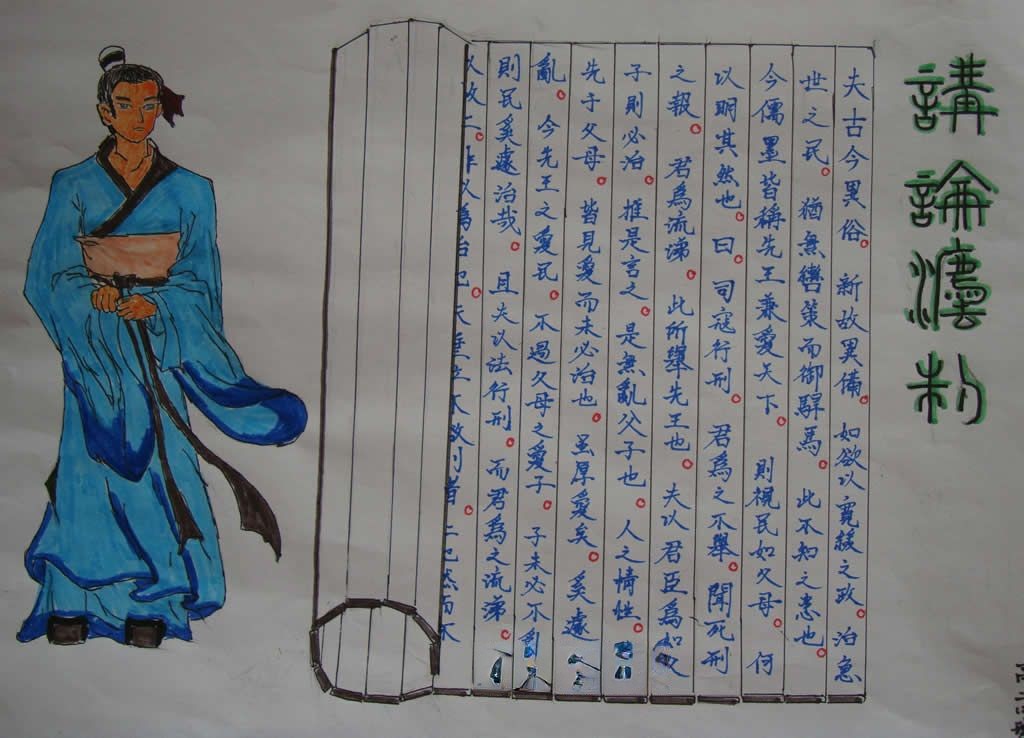 講論灋
夫古今異俗。新故異備。如欲以寬緩之政。治急
世之民。猶無轡策而御駻馬。此不知之患也。
今儒墨皆稱先王兼愛天下。則視民如父母。何
以明其然也。曰。司寇行刑。君爲之不舉。聞死刑
之報。君爲流涕。此所舉先王也。夫以君臣爲如父
子則必治。推是言之。是無亂父子也。人之情性。
先于父母。皆見愛而未必治也。虽厚愛矣。奚遽
亂。今先王之愛民。不過父母之愛子。子未必不亂
則民奚遽治哉。且夫以法行刑。而君爲之流涕。
以效仁。非以爲治也。夫垂泣不欲刑者。仁也。然而不